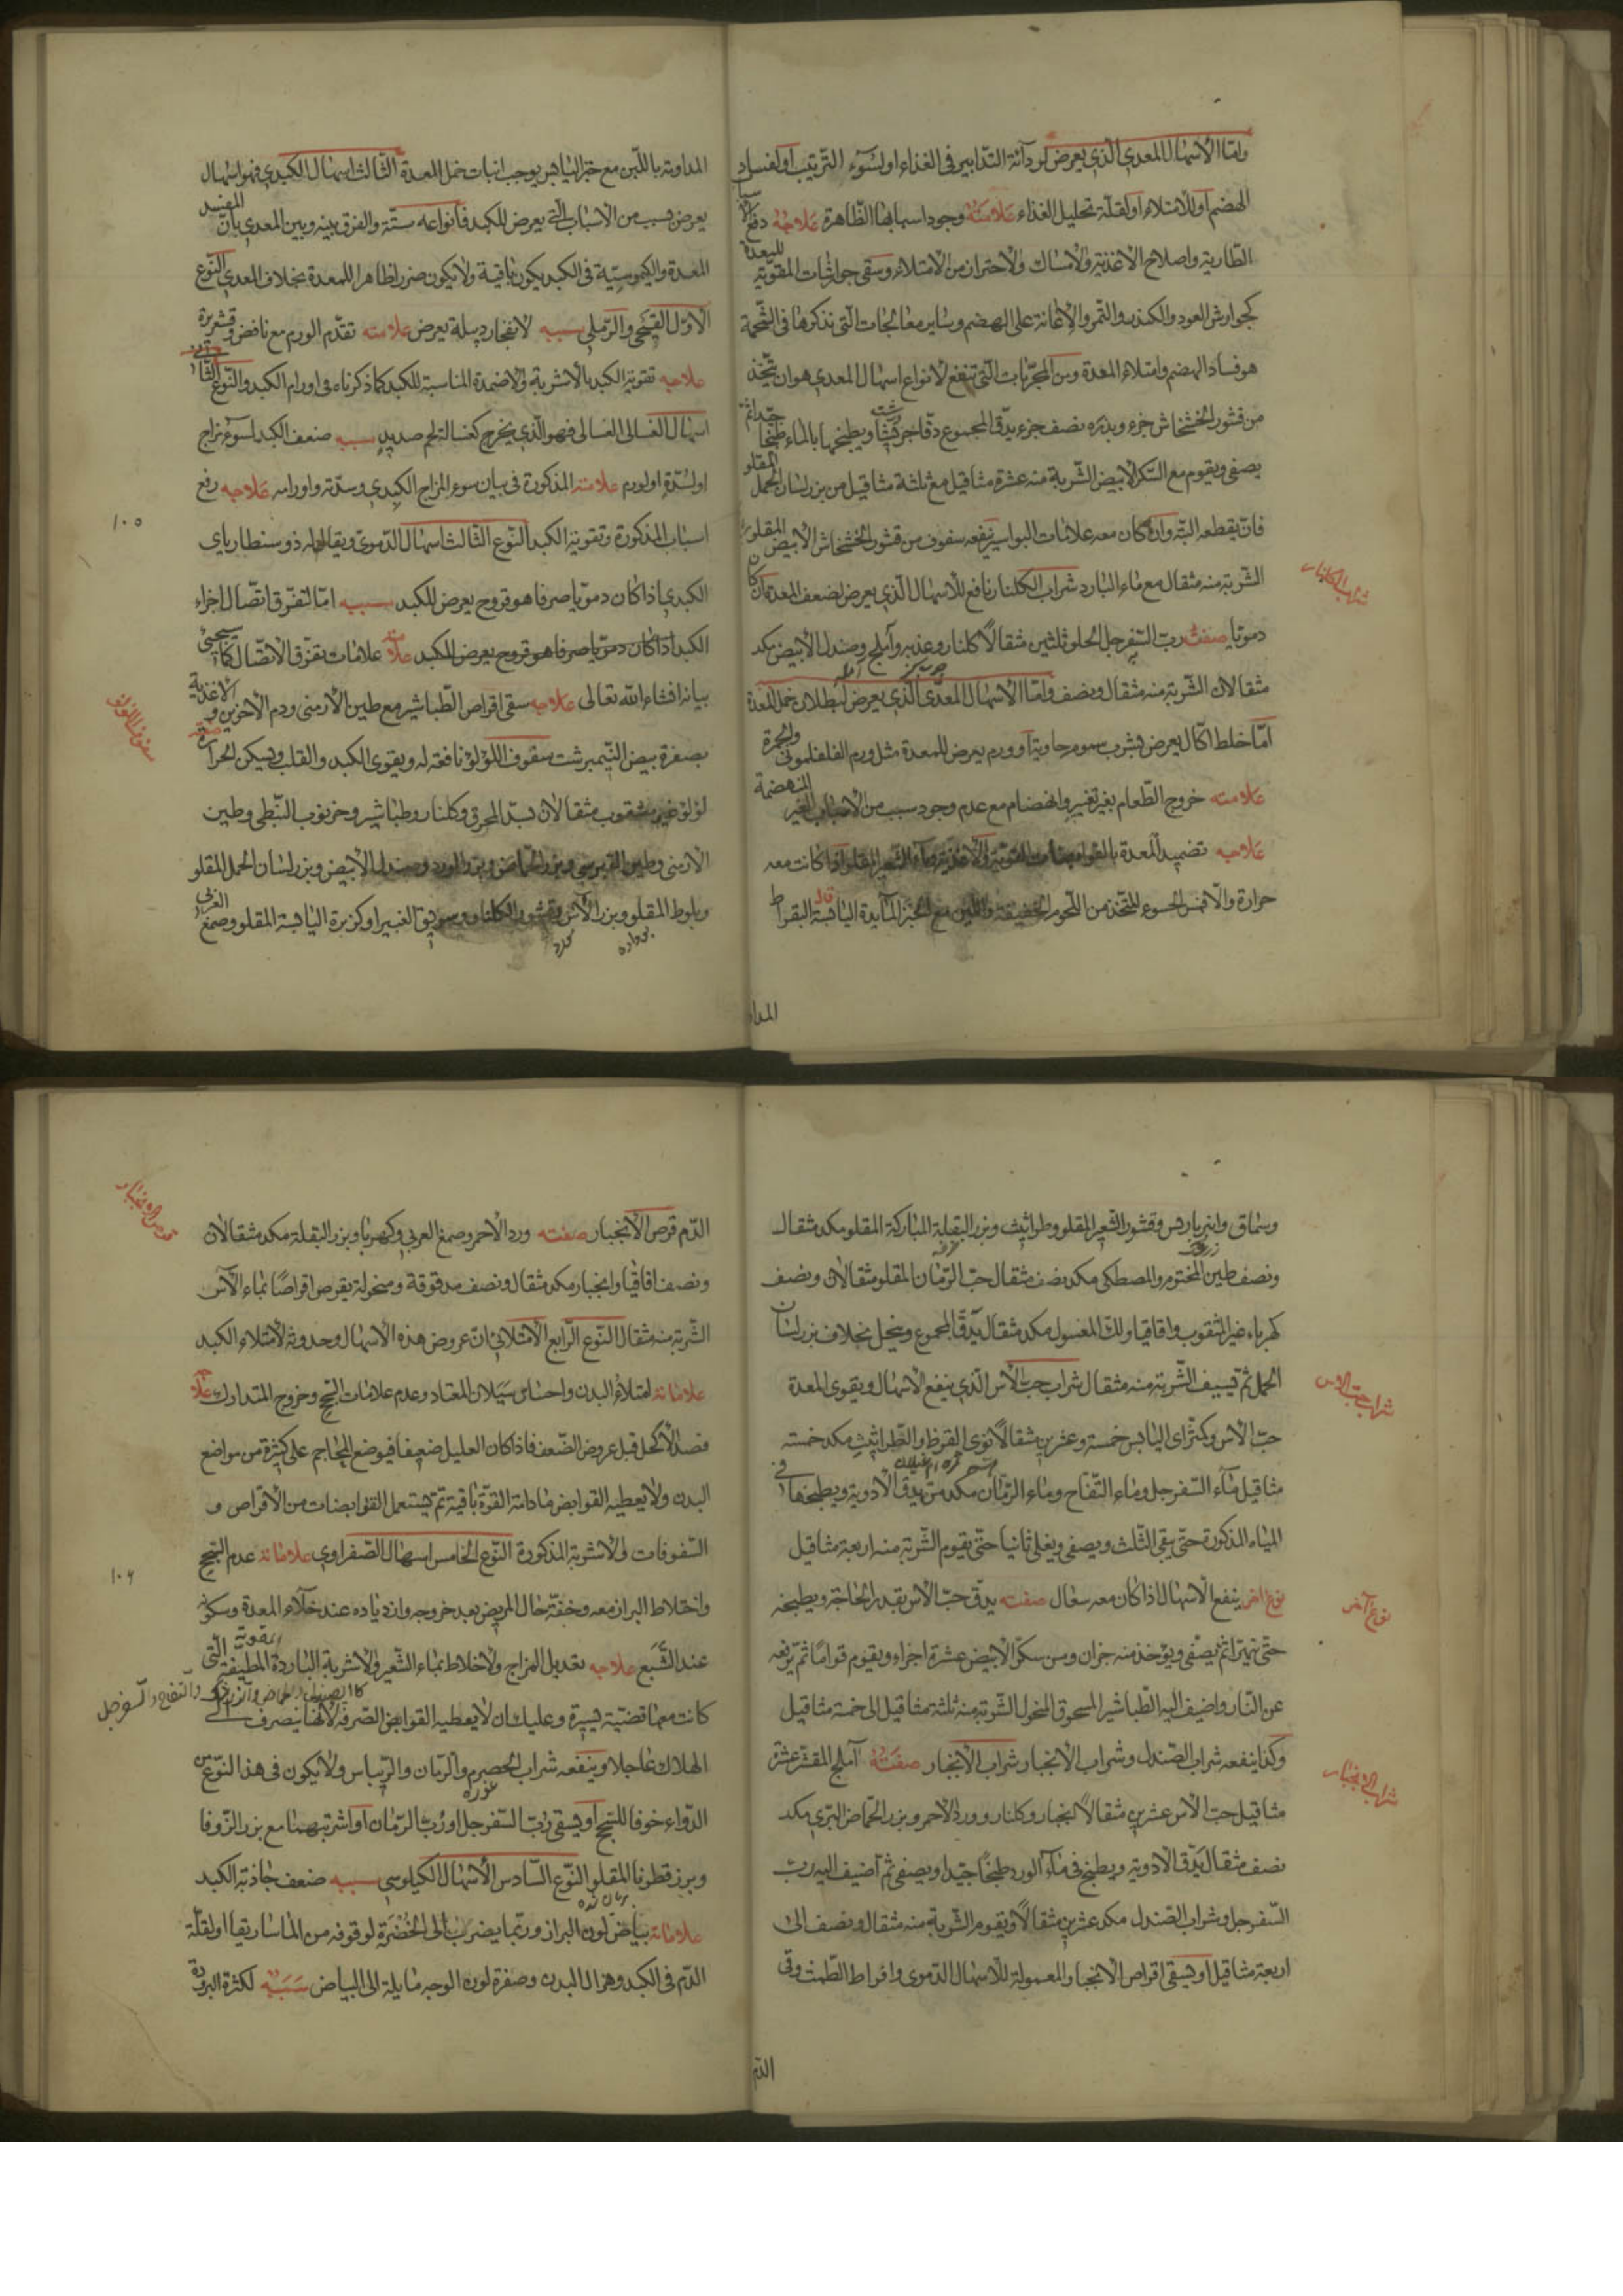 وامّا الاسهال المعدي الّذي يعرض لردائة التّدابير في الغذاء او لسوء التّرتيب او لفساد
الهضم او للامتلاء او لقلّة تحليل الغذاء علامته وجود اسبابها الظّاهرة علاجه دفع الاسباب
الطّارية واصلاح الاغذية والامساك والاحتراز من الامتلاء وسقي جوارشات المقوّية للمعدة
كجوارش العود والكندر والتّمر والاعانة على الهضم وساير معالجات الّتي نذكرها في التّخمة
هو فساد الهضم وامتلاء المعدة ومن المجرّبات الّتي تنفع لانواع اسهال المعدي هو ان يتّخذ
من قشور الخشخاش جزء وبذره نصف جزء يدقّ المجموع دقّا جريشا ويطبخها بالماء طبخا جيّدا ثمّ
يصفى ويقوم مع السّكر الابيض الشّربة منه عشرة مثاقيل مع ثلثة مثاقيل من بزر لسان الحمل المقلو
فانّه يقطعه البتّه وان كان معه علامات البواسير ينفعه سفوف من قشور الخشخاش الابيض المقلو
الشّربة منه مثقال مع ماء البارد شراب الكلنار نافع للاسهال الّذي يعرض لضعف المعدة ان كان
دمويّا صفته ربّ السّفرجل الحلو ثلثين مثقالاً كلنار وعذبه وآملج وصندل الابيض مكد
مثقالان الشّربة منه مثقال ونصف وامّا الاسهال المعدّي الّذي يعرض لبطلان خمل المعدة
امّا خلط اكّال يعرض بشرب سموم حاوية او ورم يعرض للمعدة مثل ورم الفلغموني والحمرة
علامته خروج الطّعام بغير تغيير وانهضام مع عدم وجود سبب من الاسباب الغير المنهضمة
علاجه تضميد المعدة بالقوابضات المقوّية والاغذية ماء الشّعير المقلو اذا كانت معه
حرارة والّا فمن الحسوء المتّخذ من اللّحوم الخفيفة واللّبن مع الخبز اليابسة قال البقراط
المدا
شراب الكلنار
المداومة باللّبن مع خبز اليابس يوجب انبات خمل المعدة الثّالث اسهال الكبدي فهو اسهال
يعرض بسبب من الاسباب الّتي يعرض للكبد فانواعه ستّة والفرق بينه وبين المعدي بانّ المفسد
المعدة والكيموسيّة في الكبد يكون باقية ولا يكون ضرر لظاهر المعدة بخلاف المعدي النّوع
الاوّل القيحي والرّملي سببه لانفجار دبيلة يعرض علامته تقدّم الورم مع نافض وقشعريرة
علاجه تقوية الكبد بالاشربة والاضمدة المناسبة للكبد كما ذكرناه في اورام الكبد والنّوع الثّاني
اسهال الغسالي الغسالي فهو الّذي يخرج كغسالة لحم صديد سببه ضعف الكبد لسوء مزاج
او لسّدّة او لورم علامته المذكورة في بيان سوء المزاج الكبدي وسدّته واورامه علاجه رفع
اسباب المذكورة وتقوية الكبد النّوع الثّالث اسهال الدّموي ويقال له ذوسنطارياي
الكبدي اذا كان دمويّا صرفا هو قروح يعرض للكبد سببه امّا لتفرّق اتّصال اجزاء
الكبد اذا كان دمويّا صرفا هو قروح يعرض للكبد علامته علامات تفرّق الاتّصال كما سيجيئ
بيانه انشاء الله تعالى علاجه سقي اقراص الطّباشير مع طين الارمني ودم الاخوين والاغذية
بصفرة بيض النّيمبرشت سفوف اللؤلؤ نافعة له ويقوى الكبد والقلب ويسكن الحرارة صفته
لؤلؤ غير مثقوب مثقالان بسدّ المحرق وكلنار وطباشير وخرنوب النّبطي وطين
الارمني وطين القبرسي وبزر الحمّاض وبزر الورد وصندل الابيض وبزر لسان الحمل المقلو
وبلوط المقلو وبزر الآس وقشور الكلنار وسويق الغبيرا وكزبرة اليابسة المقلو وصمغ العربي
١٠٥
سفوف اللؤلؤ
وسماق وانبرباريس وقشور الشّعير المقلو وطراثيث وبزر البقلة المباركة المقلو مكد مثقال
ونصف طين المختوم والمصطكي مكد نصف مثقال حبّ الرّمان المقلو مثقالان ونصف
كهرباء غير المثقوب واقاقيا ولكّ المغسول مكد مثقال يدقّ المجموع وينخل بخلاف بزر لسان
الحمل ثمّ يسيف الشّربة منه مثقال شراب حبّ الآس الّذي ينفع الاسهال ويقوى المعدة
حبّ الآس وكمثراى اليابس خمسة وعشرين مثقالاً نوى القرظ والطّراثيث مكد خمسة
مثاقيل ماء السّفرجل وماء التّفاح وماء الرّمّان مكد منّ يدقّ الادوية ويطبخها في
المياه المذكورة حتّى يبقى الثّلث ويصفى ويغلى ثانيا حتّى يقوم الشّربة منه اربعة مثاقيل
نوع آخر ينفع الاسهال اذا كان معه سعال صفته يدقّ حبّ الآس بقدر الحاجة ويطبخه
حتّى يتهرّا ثمّ يصفّى ويؤخذ منه جزان ومن سكّر الابيض عشرة اجزاء ويقوم قواما ثمّ يرفعه
عن النّار واضيف اليه الطّباشير المسحوق المنخول الشّربة منه ثلثة مثاقيل الى خمسة مثاقيل
وكذا ينفعه شراب الصّندل وشراب الانجبار شراب الانجبار صفته آملج المقشّر عشرة
مثاقيل حبّ الآس عشرين مثقالاً انجبار وكلنار وورد الاحمر وبزر الحمّاض البرّي مكد
نصف مثقال يدقّ الادوية ويطبخ في ماء الورد طبخا جيّدا ويصفى ثمّ اضيف اليه ربّ
السّفرجل وشراب الصّندل مكد عشرين مثقالاً ويقوم الشّربة منه مثقال ونصف الى
اربعة مثاقيل او يسقى اقراص الانجبار المعمولة للاسهال الدّموي وافراط الطّمث وقي
الدّم
شراب حبّ الآس
نوع آخر
شراب الانجبار
الدّم قرص الانجبار صفته ورد الاحمر وصمغ العربي وكهربا وبزر البقلة مكد مثقالان
ونصف اقاقيا وانجبار مكد مثقال ونصف مدقوقة ومنخولة يقرص اقراصًا بماء الآس
الشّربة منه مثقال النّوع الرّابع الامتلائي انّ عروض هذه الاسهال وحدوثه لامتلاء الكبد
علاماته امتلاء البدن واحساس سيلان المعتاد وعدم علامات السّحج وخروج المتدارك علاجه
فصد الاكحل قبل عروض الضّعف فاذا كان العليل ضعيفا فيوضع المحاجم على كثيرة من مواضع
البدن ولا يعطيه القوابض مادامة القوّة باقية ثمّ يستعمل القوابضات من الاقراص و
السّفوفات والاشربة المذكورة النّوع الخامس اسهال الصّفراوي علاماته عدم السّحج
واختلاط البراز معه وخفّة حال المريض بعد خروجه وازدياده عند خلاء المعدة وسكونه
عند الشّبع علاجه تعديل المزاج والاخلاط بماء الشّعير والاشربة الباردة المطفية الّتي
كانت معها قبضيّة يسيرة وعليك ان لا يعطيه القوابض الصّرفة لانّها ينصرف الى
الهلاك عاجلا وينفعه شراب الحصرم والرّمان والرّيباس ولا يكون في هذا النّوع من
الدّواء خوفا للسّحج او يسقى ربّ السّفرجل او ربّ الرّمّان او اشربتهما مع بزر الزّوفا
وبزرقطونا المقلو النّوع السّادس الاسهال الكيلوسي سببه ضعف جاذبة الكبد
علاماته بياض لون البراز وربّما يضرب الى الخضرة لوقوفه من الماساريقا او لقلّة
الدّم في الكبد وهزال البدن وصفرة لون الوجه مايلة الى البياض سببه لكثرة البرودة
قرص الانجبار
١٠٦
والتفاح والسفرجل